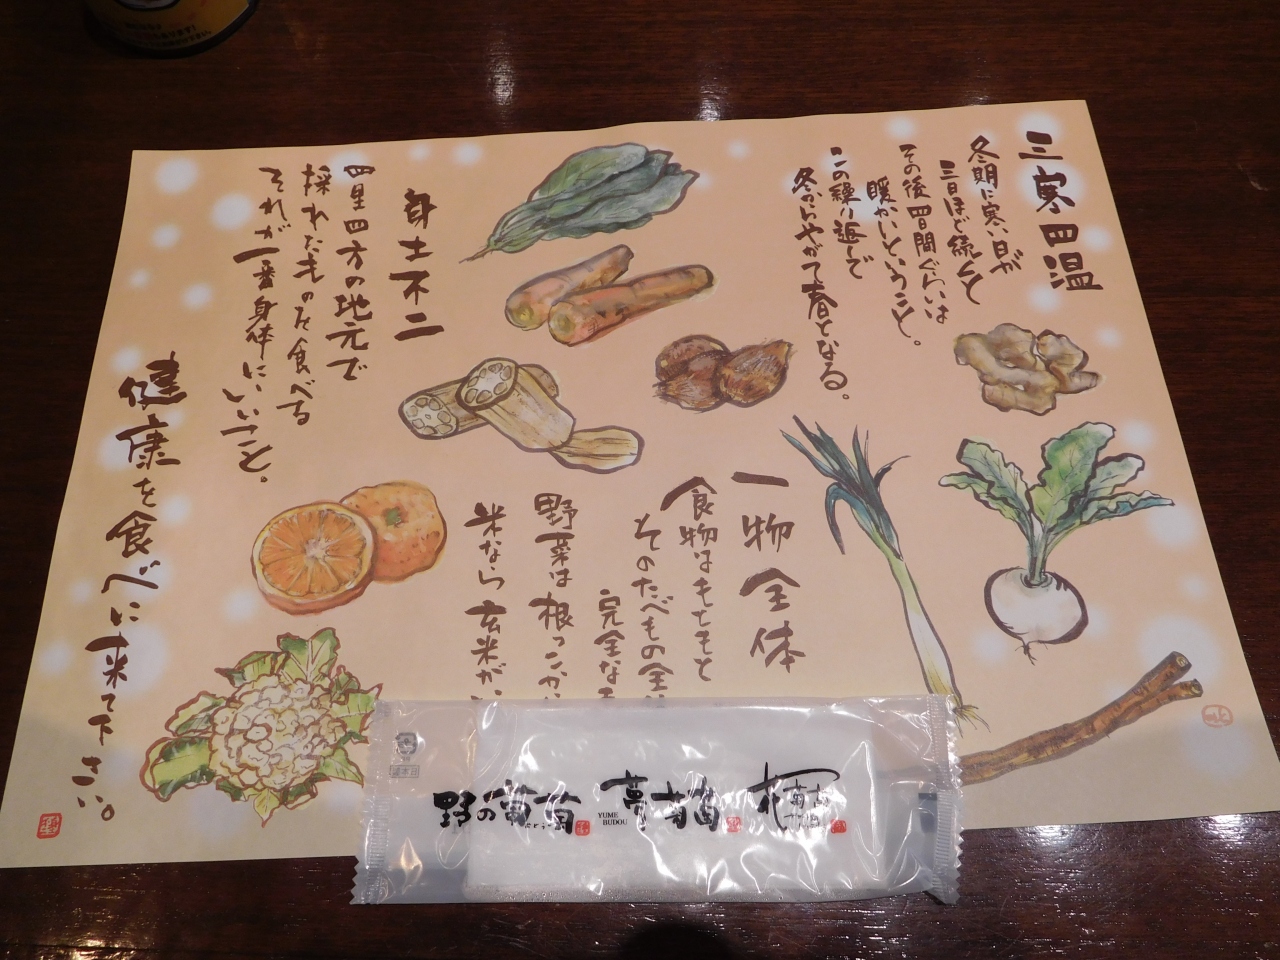 三寒四温
冬期に寒い日が
三日ほど続くと
その後四日間ぐらいは
暖かいということ。
この繰り返しで
冬からやがて春となる。
一物全体
食物はもともと
そのたべもの全
完全な
野菜は根っこか
米なら玄米が
身土不二
四里四方の地元で
採れたものを食べる
それが一番身体にいいこと。
健康を食べに来て下さい。
野の葡萄
夢葡萄
YUME
BUDOU
花葡萄